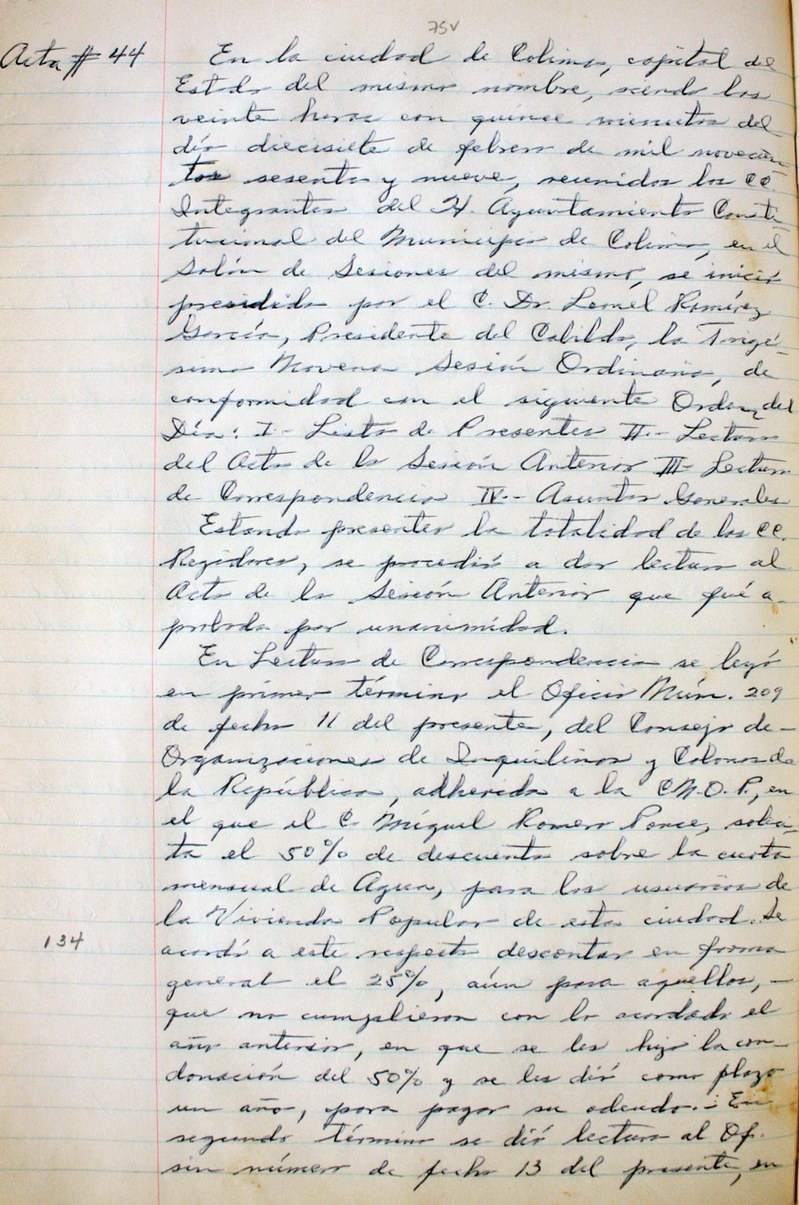 75v
Acta # 44
En la ciudad de Colima, capital del
Estado del mismo nombre, siendo las
veinte horas con quince minutos del
día diecisiete de febrero de mil novecien
tos sesenta y nueve, reunidos los CC.
Integrantes del H. Ayuntamiento Consti-
tucional del Municipio de Colima, en el
Salón de Sesiones del mismo, se inició
presidida por el C. Dr. Leonel Ramírez
García, Presidente del Cabildo, la Trigé-
sima Novena Sesión Ordinaria, de
conformidad con el siguiente Orden del
Día: I- Lista de Presentes II.- Lectura
del Acta de la Sesión Anterior III- Lectura
de Correspondencia IV.- Asuntos Generales
Estando presentes la totalidad de los CC.
Regidores, se procedió a dar lectura al
Acta de la Sesión Anterior que fué a-
probada por unanimidad.
En Lectura de Correspondencia se leyó
en primer término el Oficio Núm. 209
de fecha 11 del presente, del Consejo de-
Organizaciones de Inquilinos y Colonos de
la República, adherida a la C.N.O.P., en
el que el C. Miguel Romero Ponce, solici-
ta el 50% de descuento sobre la cuota
mensual de Agua, para los usuarios de
la Vivienda Popular de esta ciudad. Se
134
acordó a este respecto descontar en forma
general el 25%, aún para aquellos, -
que no cumplieron con lo acordado el
año anterior, en que se les hizo la con-
donación del 50% y se les dió como plazo
un año, para pagar su adeudo.- En
segundo término se dió lectura al Of.
sin número de fecha 13 del presente, en